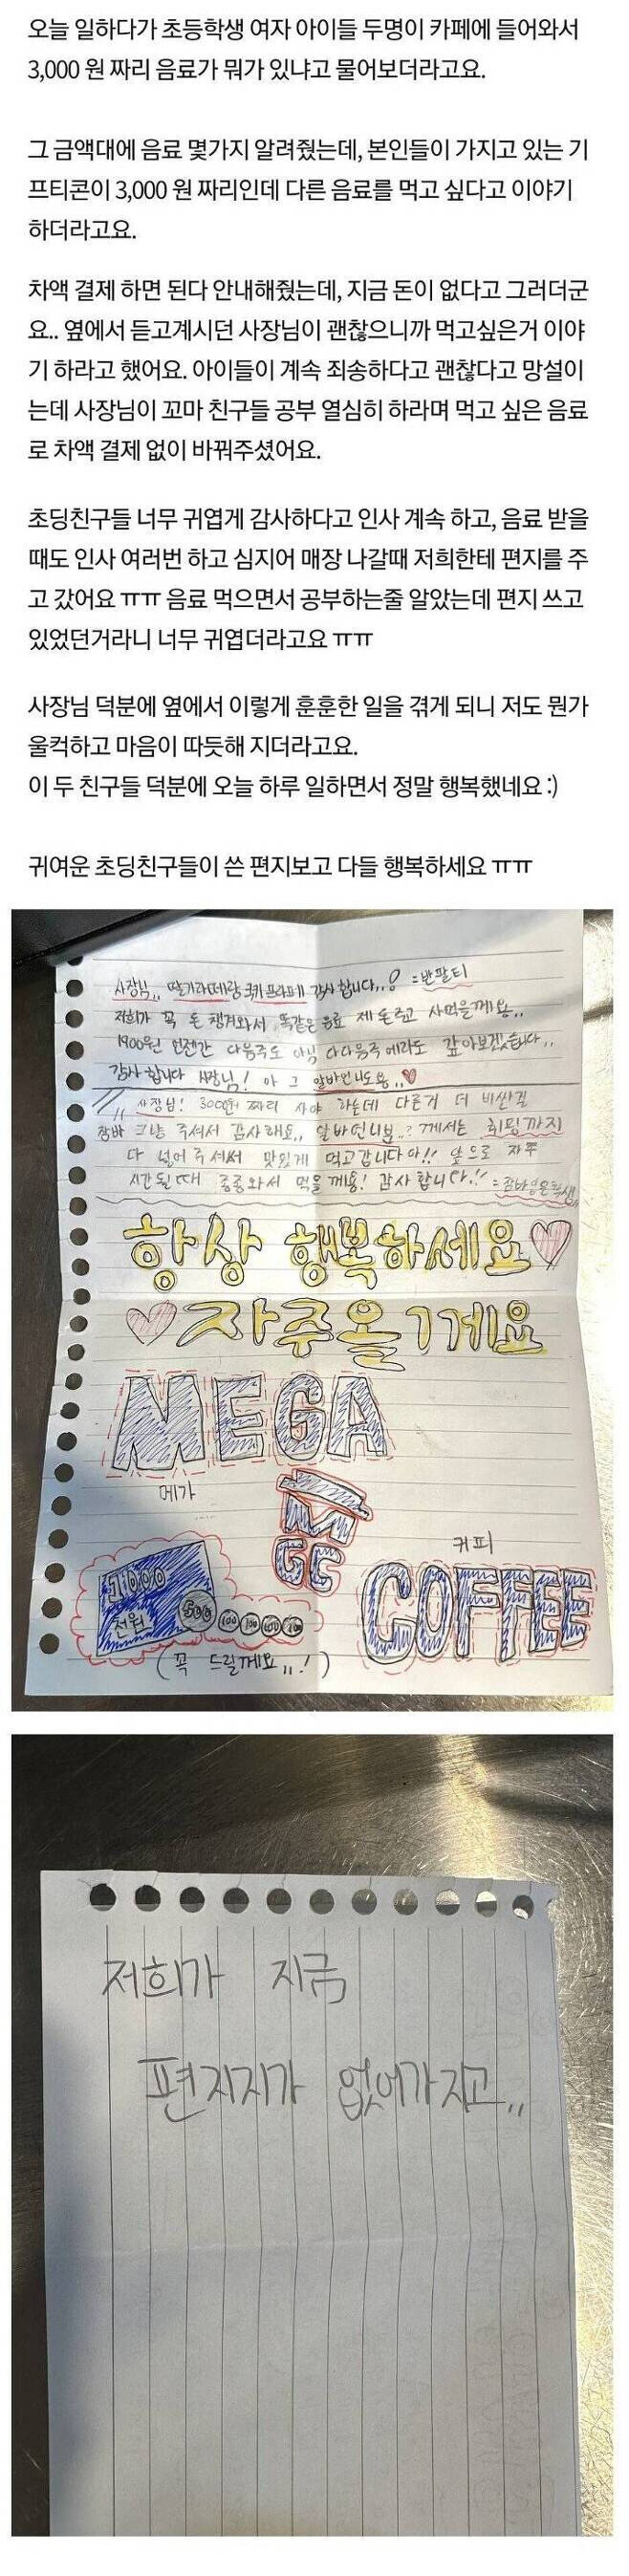 오늘 일하다가 초등학생 여자 아이들 두명이 카페에 들어와서
3,000 원 짜리 음료가 뭐가 있냐고 물어보더라고요.
그 금액대에 음료 몇가지 알려줬는데, 본인들이 가지고 있는 기
프티콘이 3,000 원 짜리인데 다른 음료를 먹고 싶다고 이야기
하더라고요.
차액 결제 하면 된다 안내해줬는데, 지금 돈이 없다고 그러더군
요.. 옆에서 듣고계시던 사장님이 괜찮으니까 먹고싶은거 이야
기 하라고 했어요. 아이들이 계속 죄송하다고 괜찮다고 망설이
는데 사장님이 꼬마 친구들 공부 열심히 하라며 먹고 싶은 음료
로 차액 결제 없이 바꿔주셨어요.
초딩친구들 너무 귀엽게 감사하다고 인사 계속 하고, 음료 받을
때도 인사 여러번 하고 심지어 매장 나갈때 저희한테 편지를 주
고 갔어요 ㅠㅠ 음료 먹으면서 공부하는줄 알았는데 편지 쓰고
있었던거라니 너무 귀엽더라고요 ㅠㅠ
사장님 덕분에 옆에서 이렇게 훈훈한 일을 겪게 되니 저도 뭔가
울컥하고 마음이 따듯해 지더라고요.
이 두 친구들 덕분에 오늘 하루 일하면서 정말 행복했네요 :)
귀여운 초딩친구들이 쓴 편지보고 다들 행복하세요 ㅠㅠ
사장님,, 딸기라떼랑 쿠키프라페 감사합니다,,! =반팔티
저희가 꼭 돈 챙겨와서, 똑같은 음료 제 돈주고 사먹을께요..
1900원 언젠간 다음주도 아님 다다음주에라도 갚아보겠습니다,,
감사합니다 사장님! 아 그 알바언니도용,,♥
사장님! 3000원 짜리 사야 하는데 다른거 더 비싼걸
그냥 주셔서 감사해요,, 알바언니분..? 께서는 휘핑까지
다 넣어주셔서 맛있게 먹고갑니다아!! 앞으로 자주
시간될때 종종와서 먹을께용! 감사합니다!!
항상 행복하세요♡
♡자주올게요
MEGA
메가
M
GC
커피
COFFEE
1000
천원
500 100 100 100 100
(꼭 드릴께요,,!)
저희가 지금
편지지가 없어가지고,,